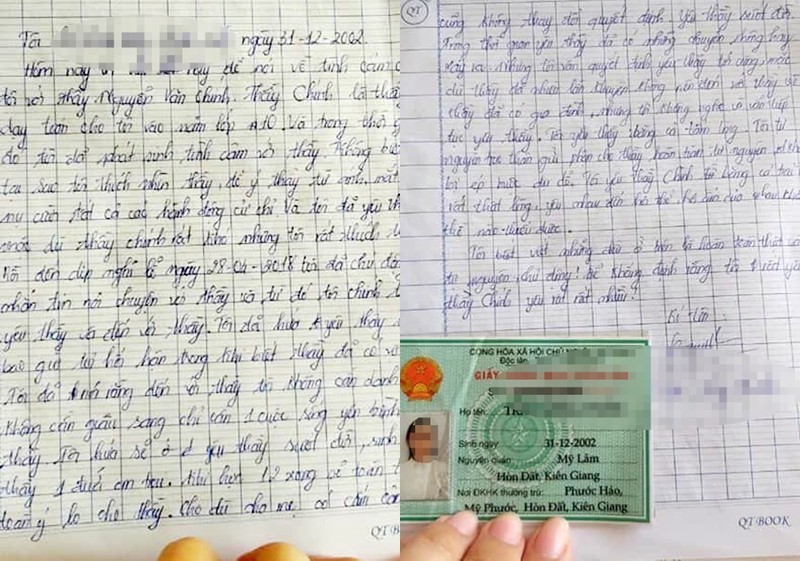 Tôi ngày 31-12-2002
Hôm nay tôi này, để nói về tình cảm c
tôi với thầy Nguyễn Văn Chinh. Thầy Chinh là thầ
dạy toán cho tôi vào năm lớp A10. Và trong thời g
đó tôi đã phát sinh tình cảm với thầy. Không biết
tại sao tôi thích nhìn thầy, để ý thầy từ ánh mắt
nụ cười tất cả các hành động cử chỉ Và tôi đã yêu th
mặc dù thầy chinh rất khó nhưng tôi rất thích
Tôi đến dịp nghỉ lễ ngày 28-04-2018 tôi đã chủ độ
nhắn tin nói chuyện với thầy và từ đó tôi chính t
yêu thầy và đến với thầy. Tôi đã hứa yêu thầy
bao giờ hối hận trong khi biết thầy đã có v
Tôi đã nói rằng đến với thầy tôi không cần danh
không cần giàu sang chỉ cần 1 cuộc sống yên bình
thầy. Tôi hứa sẽ yêu thầy suốt đời, sinh
thầy 1 đứa em bé. Khi học 12 xong sẽ toàn t
toàn ý lo cho thầy. Cho dù cha mẹ, có cấm cản
QT BOOK
QT
cũng không thay đổi quyết định. Yêu thầy suốt đời.
Trong thời gian yêu thầy đã có những chuyện không hay
xảy ra. Nhưng tôi vẫn quyết định yêu thầy tới cùng, mặc
dù thầy đã nhiều lần khuyên không nên đến với thầy vì
thầy đã có gia đình, nhưng tôi không nghe và vẫn tiếp
tục yêu thầy. Tôi yêu thầy bằng cả tấm lòng. Tôi tự
nguyện trao thân gửi phận cho thầy hoàn toàn tự nguyện
bị ép buộc dụ dỗ. Tôi yêu thầy Chinh từ bằng cả trái
rất thật lòng, yêu nhau đến
thế nào hiểu được.
Tôi biết viết những điều ở trên là hoàn toàn thật
tự nguyện chủ động! Để khẳng định rằng tôi thật yêu
thầy Chinh yêu rất rất nhiều!
Kí tên
CỘNG HÒA XÃ HỘI CHỦ
Độc lập
GIẤY
Họ tên:
Sinh ngày: 31-12-2002
Nguyên quán: Mỹ Lâm
Hòn Đất, Kiên Giang
Nơi ĐKHK thường trú: Phước Hảo,
Mỹ Phước, Hòn Đất, Kiên Giang
QT BOOK